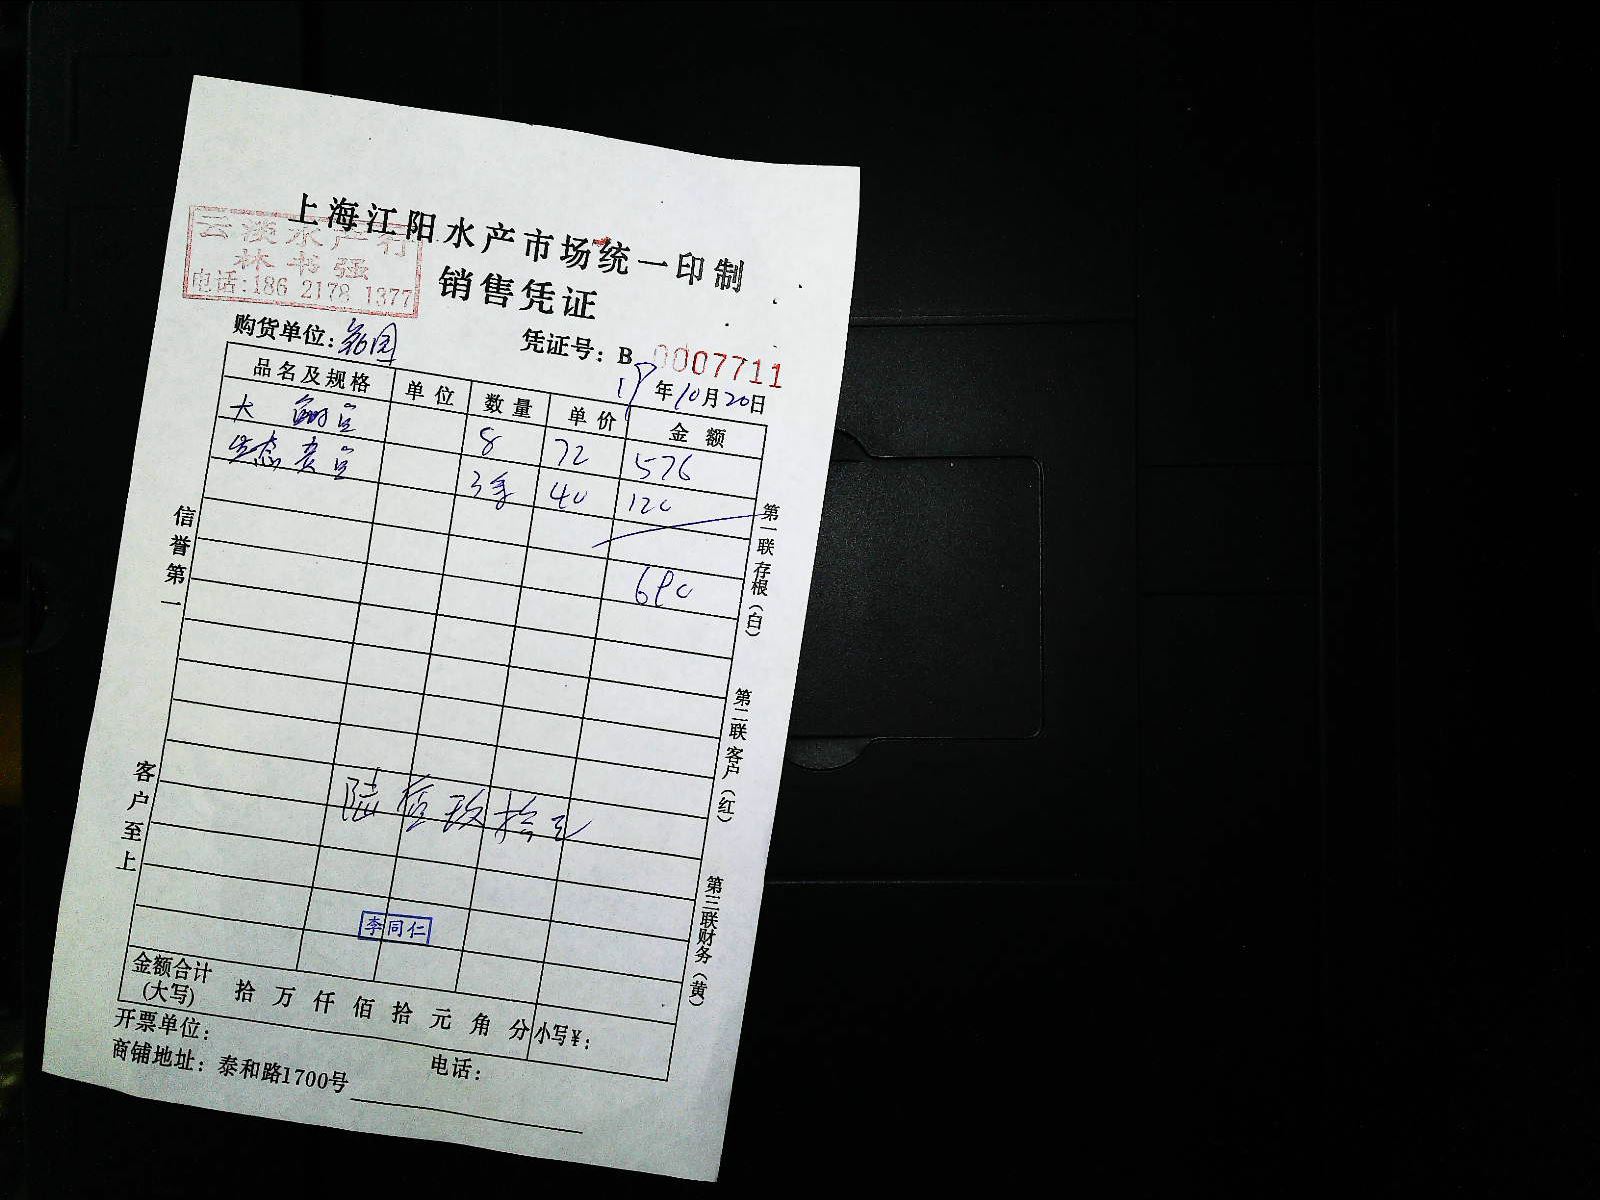 上海江阳水产市场统一印制
销售凭证
云淡水产行
林书强
电话:186 2178 1377
购货单位:
凭证号: B 0007711
年10月20日
品名及规格 单位 数量 单价 金额
大 8 72 576
生态 3 40 120
690
陆佰玖拾元
李同仁
金额合计(大写) 拾 万 仟 佰 拾 元 角 分 小写¥:
开票单位: 电话:
商铺地址: 泰和路1700号
信誉第一
客户至上
第一联 存根 (白)
第二联 客户 (红)
第三联 财务 (黄)